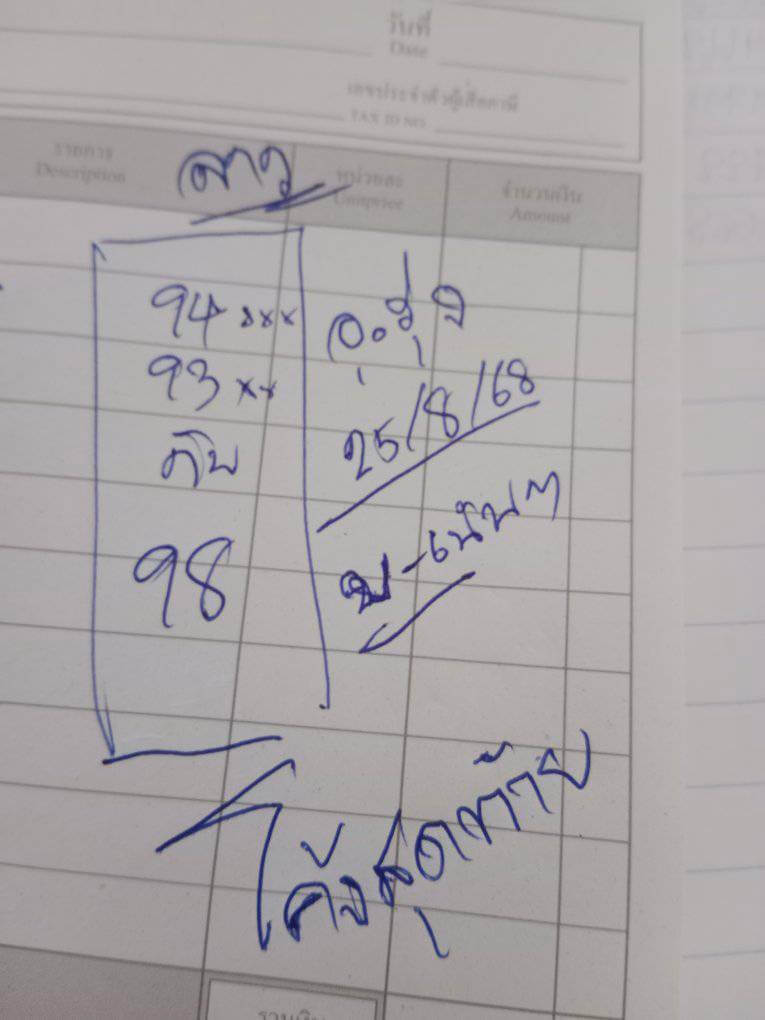 วันที่
Date
เลขประจำตัวผู้เสียภาษี
TAX ID NO.
รายการ
Description
หน่วยละ
Unitprice
จำนวนเงิน
Amount
ลาว
94 xxx
93 xx
กับ
98
25/8/68
บน-เน้นๆ
โค้งสุดท้าย
รวมเงิน